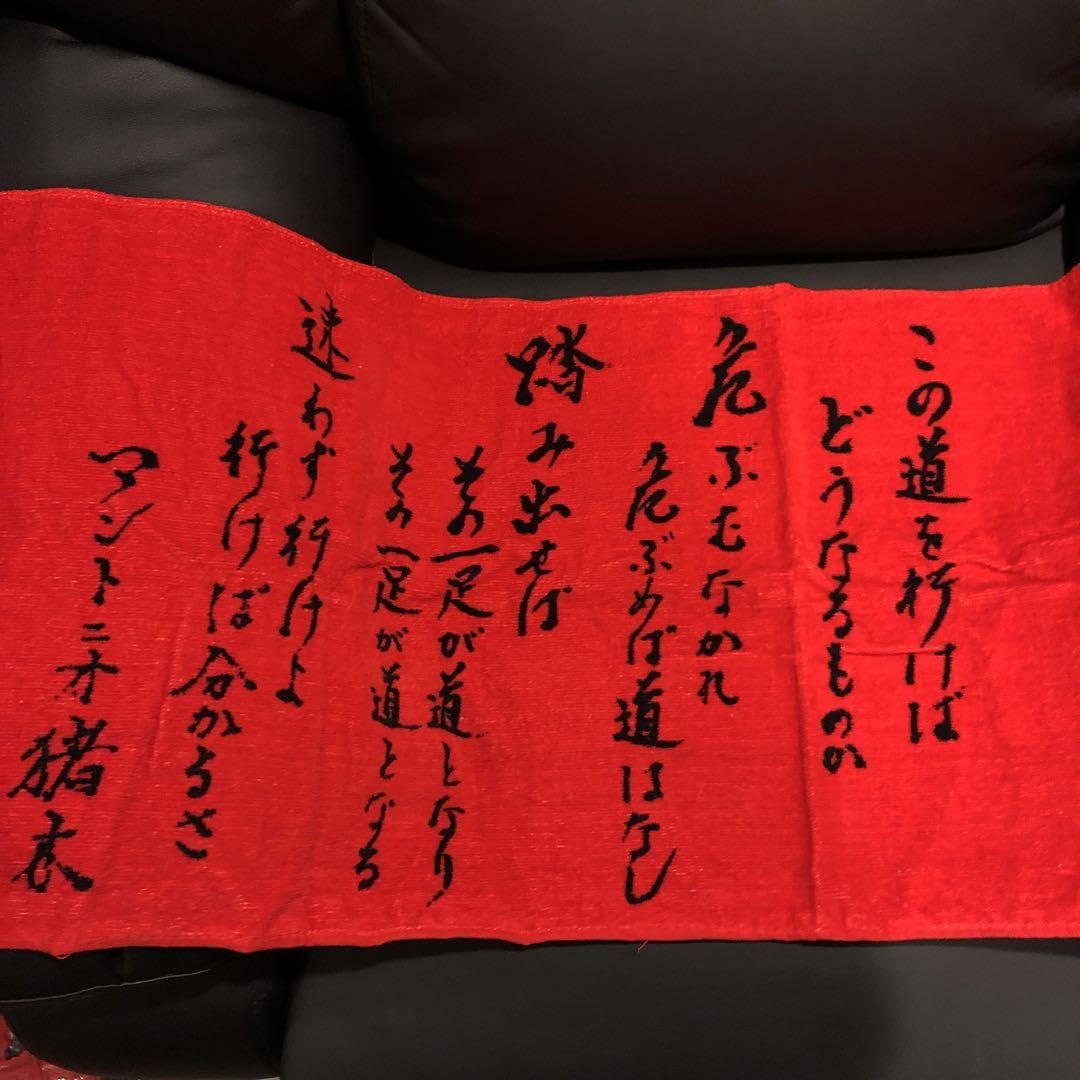 この道を行けば
どうなるものか
危ぶむなかれ
危ぶめば道はなし
踏み出せば
その一足が道となり
その一足が道となる
迷わず行けよ
行けば分かるさ
アントニオ猪木